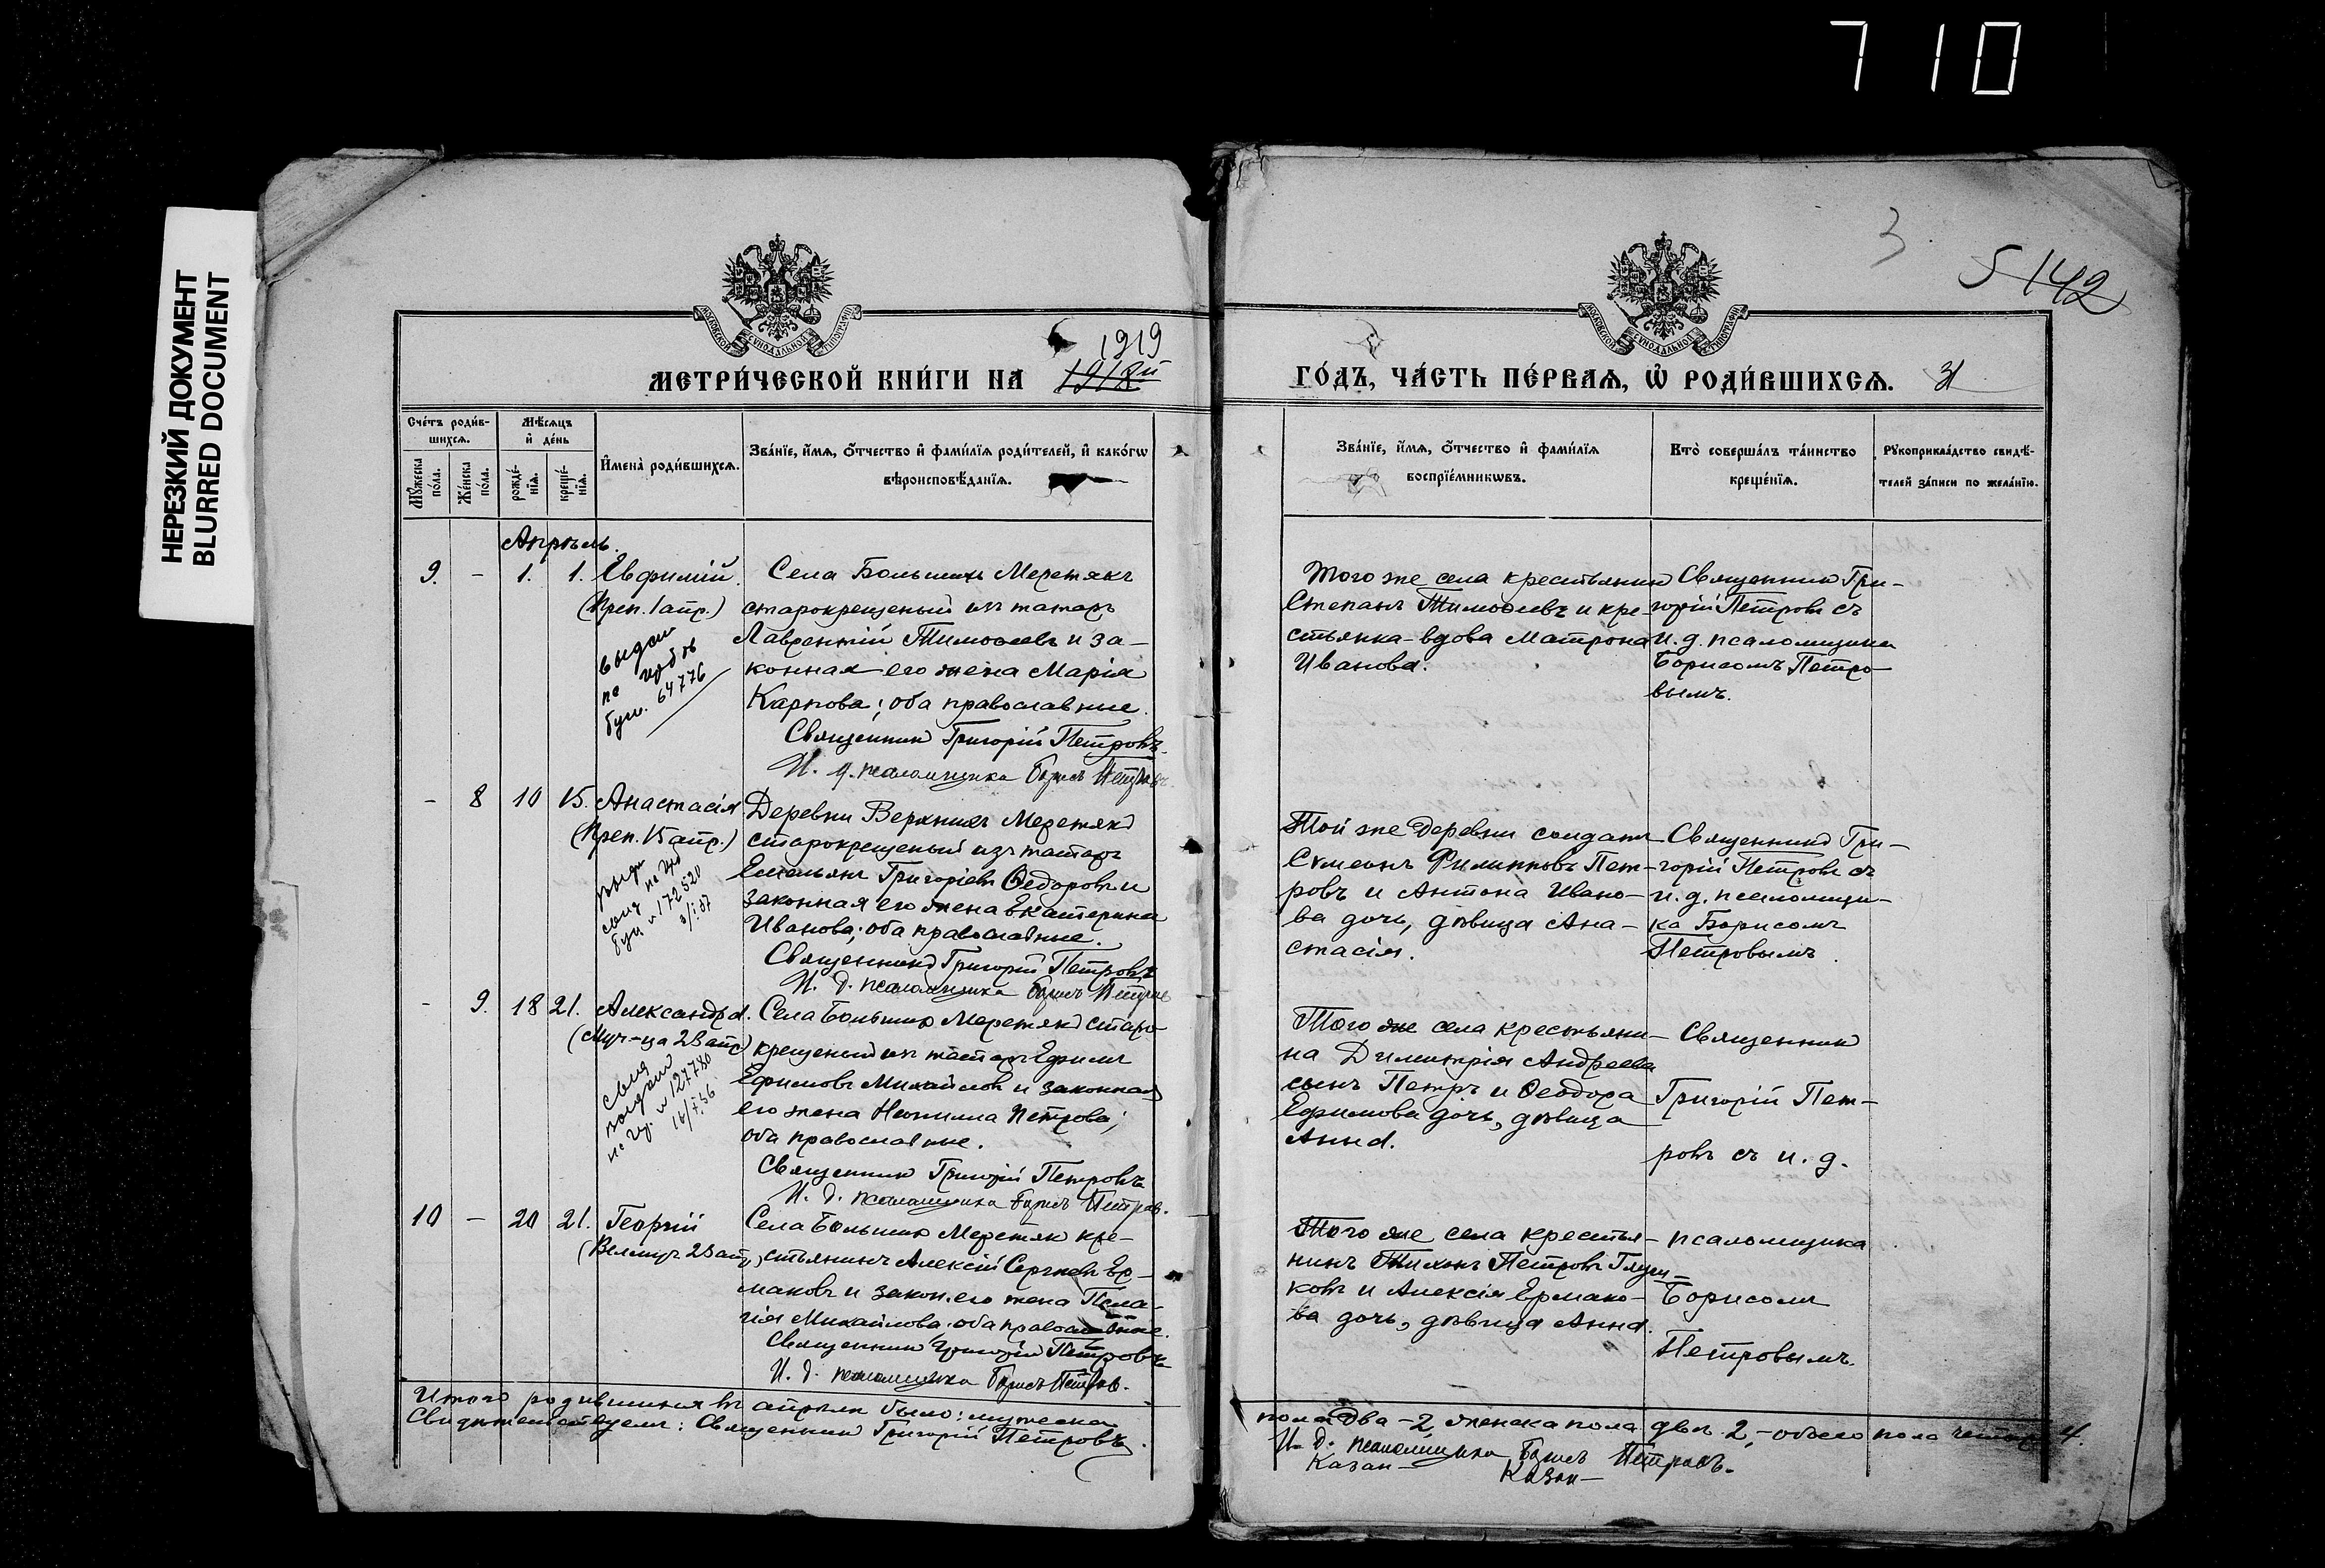 710
НЕРЕЗКИЙ ДОКУМЕНТ
BLURRED DOCUMENT
3
5 142
МОСКОВСКОЙ СѴНОДАЛЬНОЙ ТИПОГРАФІИ
МОСКОВСКОЙ СѴНОДАЛЬНОЙ ТИПОГРАФІИ
1919
МЕТРИ́ЧЕСКОЙ КНИ́ГИ НА 1918й
ГО́ДЪ, ЧА́СТЬ ПЕ́РВАѦ, Ѿ РОДИ́ВШИХСѦ.
Сче́тъ роди́в-
шихсѧ.
Мꙋ́жеска по́ла.
Же́нска по́ла.
Мѣ́сѧцъ
и҆ де́нь
рожде́-
нїѧ.
креще́-
нїѧ.
И҆мена̀ роди́вшихсѧ.
Зва́нїе, и҆́мѧ, ѻ҆́тчество и҆ фами́лїѧ роди́телей, и҆ како́гѡ
вѣроисповѣ́данїѧ.
Зва́нїе, и҆́мѧ, ѻ҆́тчество и҆ фами́лїѧ
воспрїе́мникѡвъ.
Кто̀ соверша́лъ та́инство
креще́нїѧ.
Рꙋкоприкла́дство свидѣ́-
телей за́писи по жела́нїю.
Апрѣль.
9. - 1. 1. Евфимій
(Преп. 1 апр.)
выдан
64776
Села Большихъ Меретякъ
старокрещеный изъ татаръ
Лаврентій Тимоѳеевъ и за-
конная его жена Марія
Карпова; оба православные.
Священникъ Григорій Петровъ.
И. д. псаломщика Борисъ Петровъ
Того же села крестьянинъ
Степанъ Тимоѳеевъ и кре-
стьянка-вдова Матрона
Иванова.
Священникъ Гри-
горій Петровъ съ
и. д. псаломщика
Борисомъ Петро-
вымъ.
- 8 10 15. Анастасія
(Преп. 15 апр.)
172520
Деревни Верхнихъ Меретякъ
старокрещеный изъ татаръ
Емельянъ Григорьевъ Ѳедоровъ и
законная его жена Екатерина
Иванова; оба православные.
Священникъ Григорій Петровъ
И. д. псаломщика Борисъ Петровъ
Той же деревни солдатъ
Симеонъ Филипповъ Пет-
ровъ и Антона Ивано-
ва дочь, дѣвица Ана-
стасія.
Священникъ Гри-
горій Петровъ съ
и. д. псаломщи-
ка Борисомъ
Петровымъ.
- 9. 18 21. Александра.
(Муч-ца 23 апр.)
127780
Села Большихъ Меретякъ старо-
крещеный изъ татаръ Ефимъ
Ефимовъ Михайловъ и законная
его жена Неонилла Петрова;
оба православные.
Священникъ Григорій Петровъ
И. д. псаломщика Борисъ Петровъ.
Того же села крестьяни-
на Димитрія Андреева
сынъ Петръ и Ѳеодора
Ефимова дочь, дѣвица
Анна.
Священникъ
Григорій Пет-
ровъ съ и. д.
10 - 20 21. Георгій
(Велмуч. 23 апр.)
Села Большихъ Меретяк кре-
стьянинъ Алексій Сергѣевъ Ер-
маковъ и закон. его жена Пела-
гія Михайлова. оба православные.
Священникъ Григорій Петровъ
И. д. псаломщика Борисъ Петров.
Того же села крестья-
нинъ Тихонъ Петровъ
ковъ и Алексія Ермако-
ва дочь, дѣвица Анна.
псаломщика
Борисомъ
Петровымъ.
Итого родившихся въ апрѣлѣ было: мужеска
пола два - 2, женска пола двѣ 2, - обоего пола четыре 4.
Свидѣтельствуемъ: Священникъ Григорій Петровъ.
И. д. псаломщика Борисъ Петровъ.
Казан- Казан-